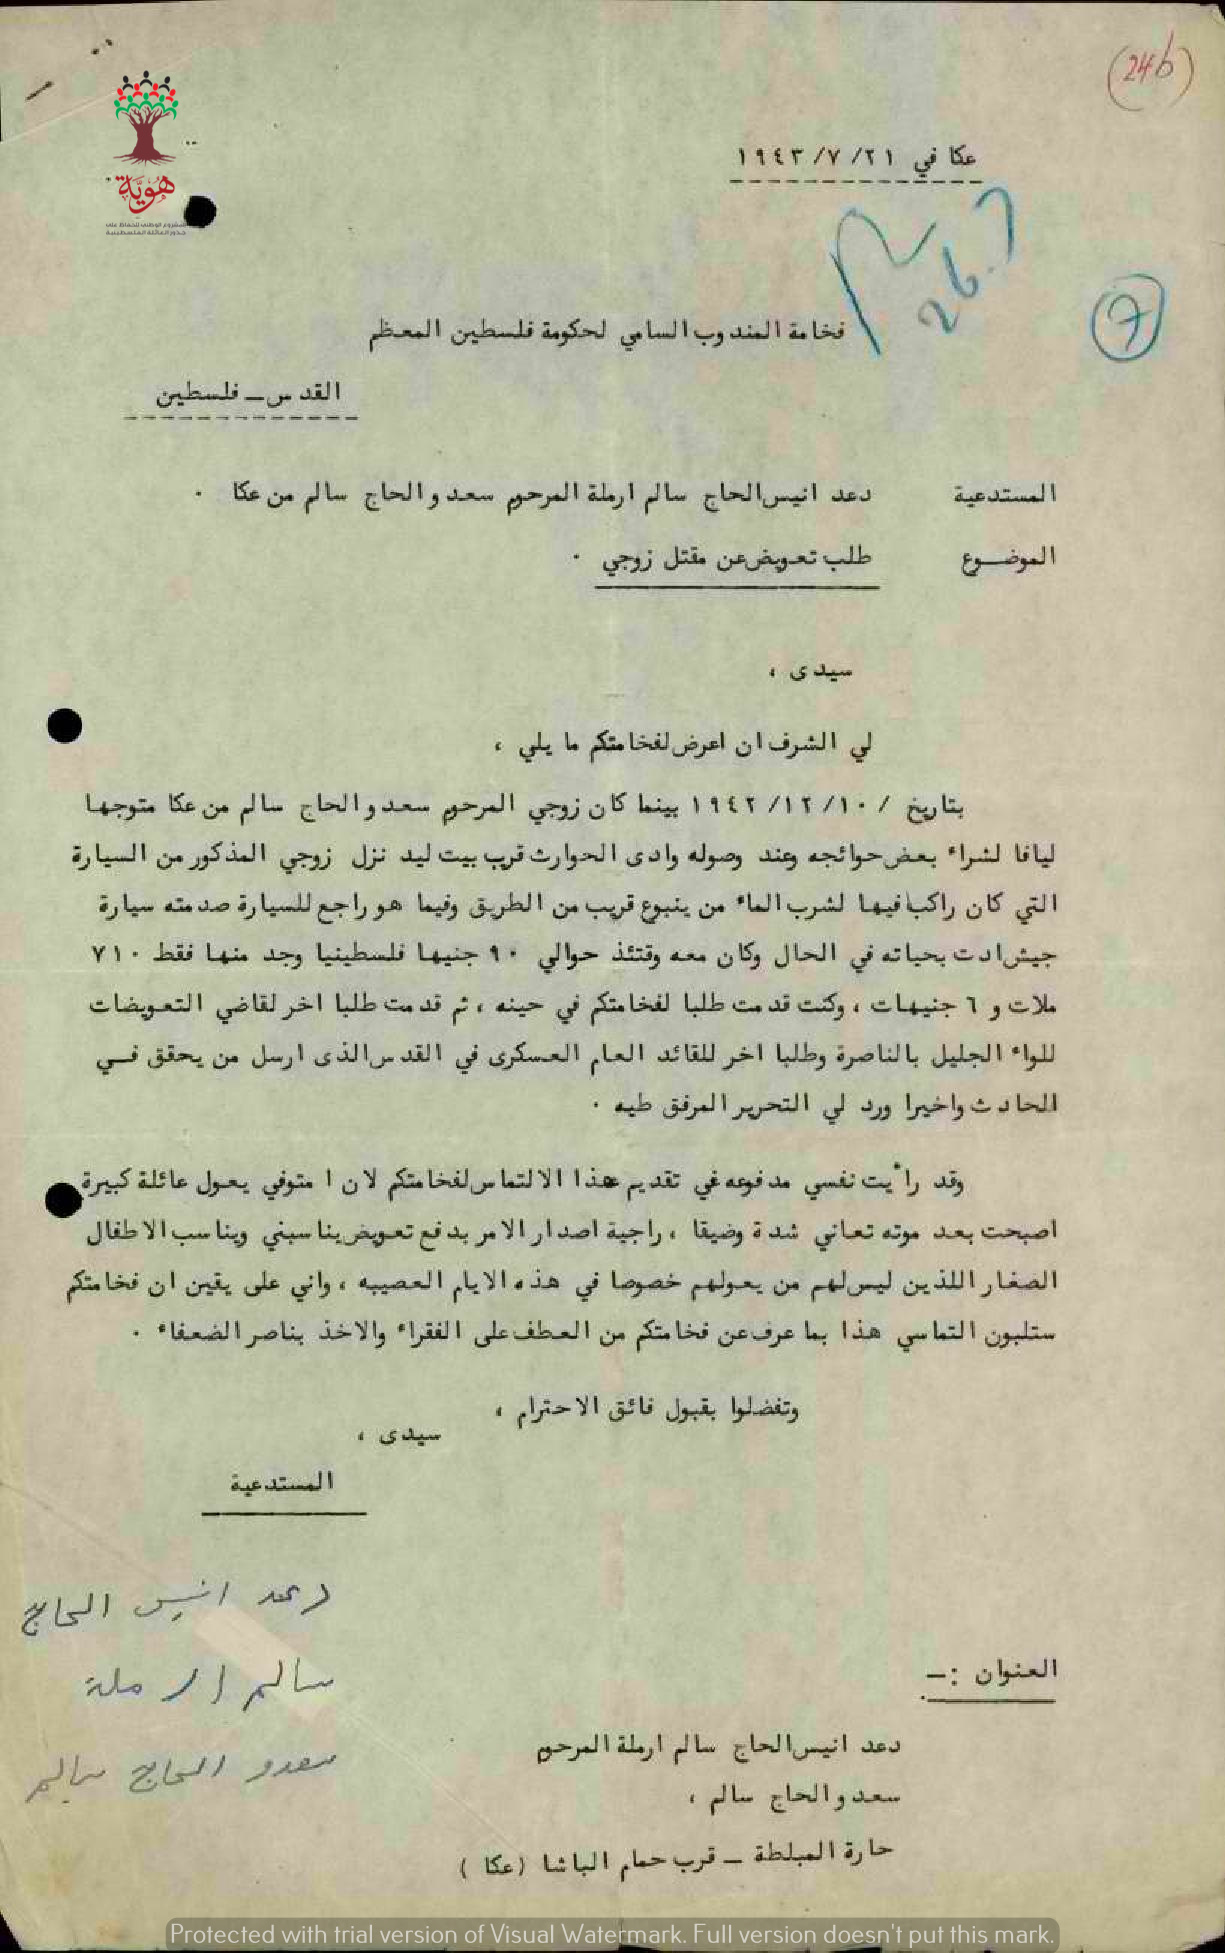 (24b)
هوية
عكا في ٢١/ ٧/ ١٩٤٣
26.7
7
فخامة المندوب السامي لحكومة فلسطين المعظم
القدس ـ فلسطين
المستدعية دعد انيس الحاج سالم ارملة المرحوم سعدو الحاج سالم من عكا ٠
الموضـوع طلب تعويض عن مقتل زوجي ٠
سيدى ،
لي الشرف ان اعرض لفخامتكم ما يلي ،
بتاريخ / ١٠/ ١٢/ ١٩٤٢ بينما كان زوجي المرحوم سعدو الحاج سالم من عكا متوجها
ليافا لشراء بعض حوائجه وعند وصوله وادى الحوارث قرب بيت ليد نزل زوجي المذكور من السيارة
التي كان راكبا فيها لشرب الماء من ينبوع قريب من الطريق وفيما هو راجع للسيارة صدمته سيارة
جيش ادت بحياته في الحال وكان معه وقتئذ حوالي ٩٠ جنيها فلسطينيا وجد منها فقط ٧١٠
ملات و ٦ جنيهات ، وكنت قدمت طلبا لفخامتكم في حينه ، ثم قدمت طلبا اخر لقاضي التعويضات
للواء الجليل بالناصرة وطلبا اخر للقائد العام العسكرى في القدس الذى ارسل من يحقق فـي
الحادث واخيرا ورد لي التحرير المرفق طيه ٠
وقد رأيت نفسي مدفوعه في تقديم هذا الالتماس لفخامتكم لان ا متوفي يعول عائلة كبيرة
اصبحت بعد موته تعاني شدة وضيقا ، راجية اصدار الامر بدفع تعويض يناسبني ويناسب الاطفال
الصغار اللذين ليس لهم من يعولهم خصوصا في هذه الايام العصيبه ، واني على يقين ان فخامتكم
ستلبون التماسي هذا بما عرف عن فخامتكم من العطف على الفقراء والاخذ بناصر الضعفاء ٠
وتفضلوا بقبول فائق الاحترام ،
سيدى ،
المستدعية
دعد انيس الحاج
سالم ارملة
سعدو الحاج سالم
العنوان :ـ
دعد انيس الحاج سالم ارملة المرحوم
سعدو الحاج سالم ،
حارة المبلطة ـ قرب حمام الباشا (عكا )
Protected with trial version of Visual Watermark. Full version doesn't put this mark.